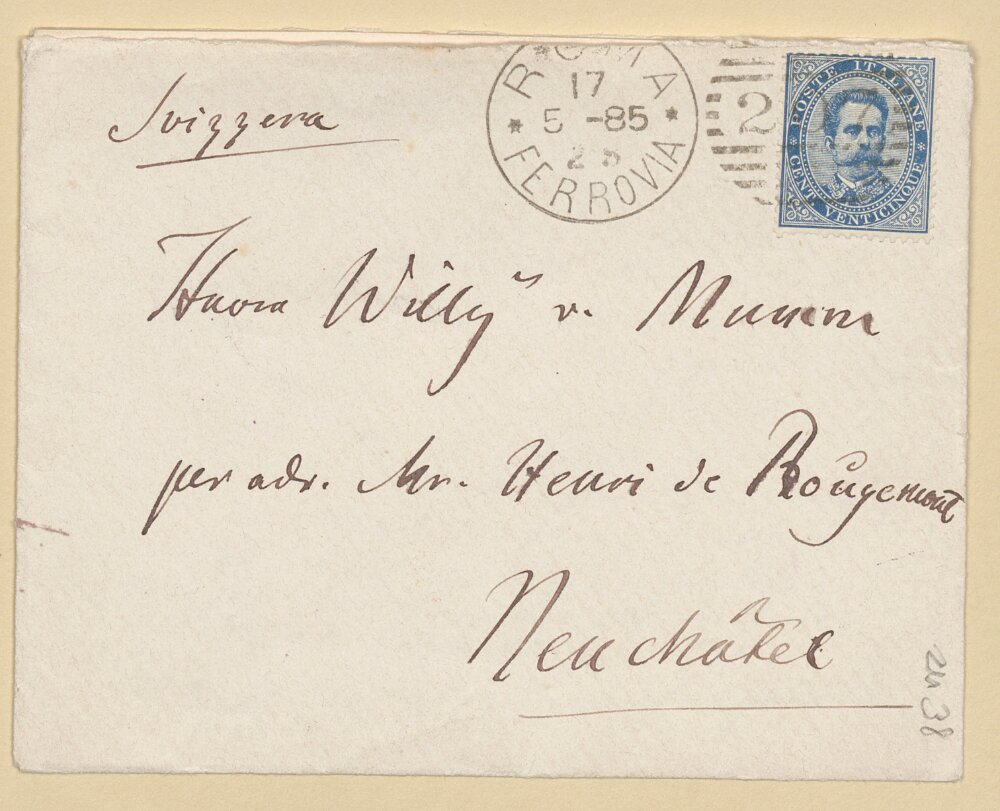 Svizzera
ROMA
17
5 -85
FERROVIA
2
POSTE ITALIANE
CENT. VENTICINQUE
Herrn Willy v. Mumm
per adr. Mr. Henri de Rougemont
Neuchâtel
38